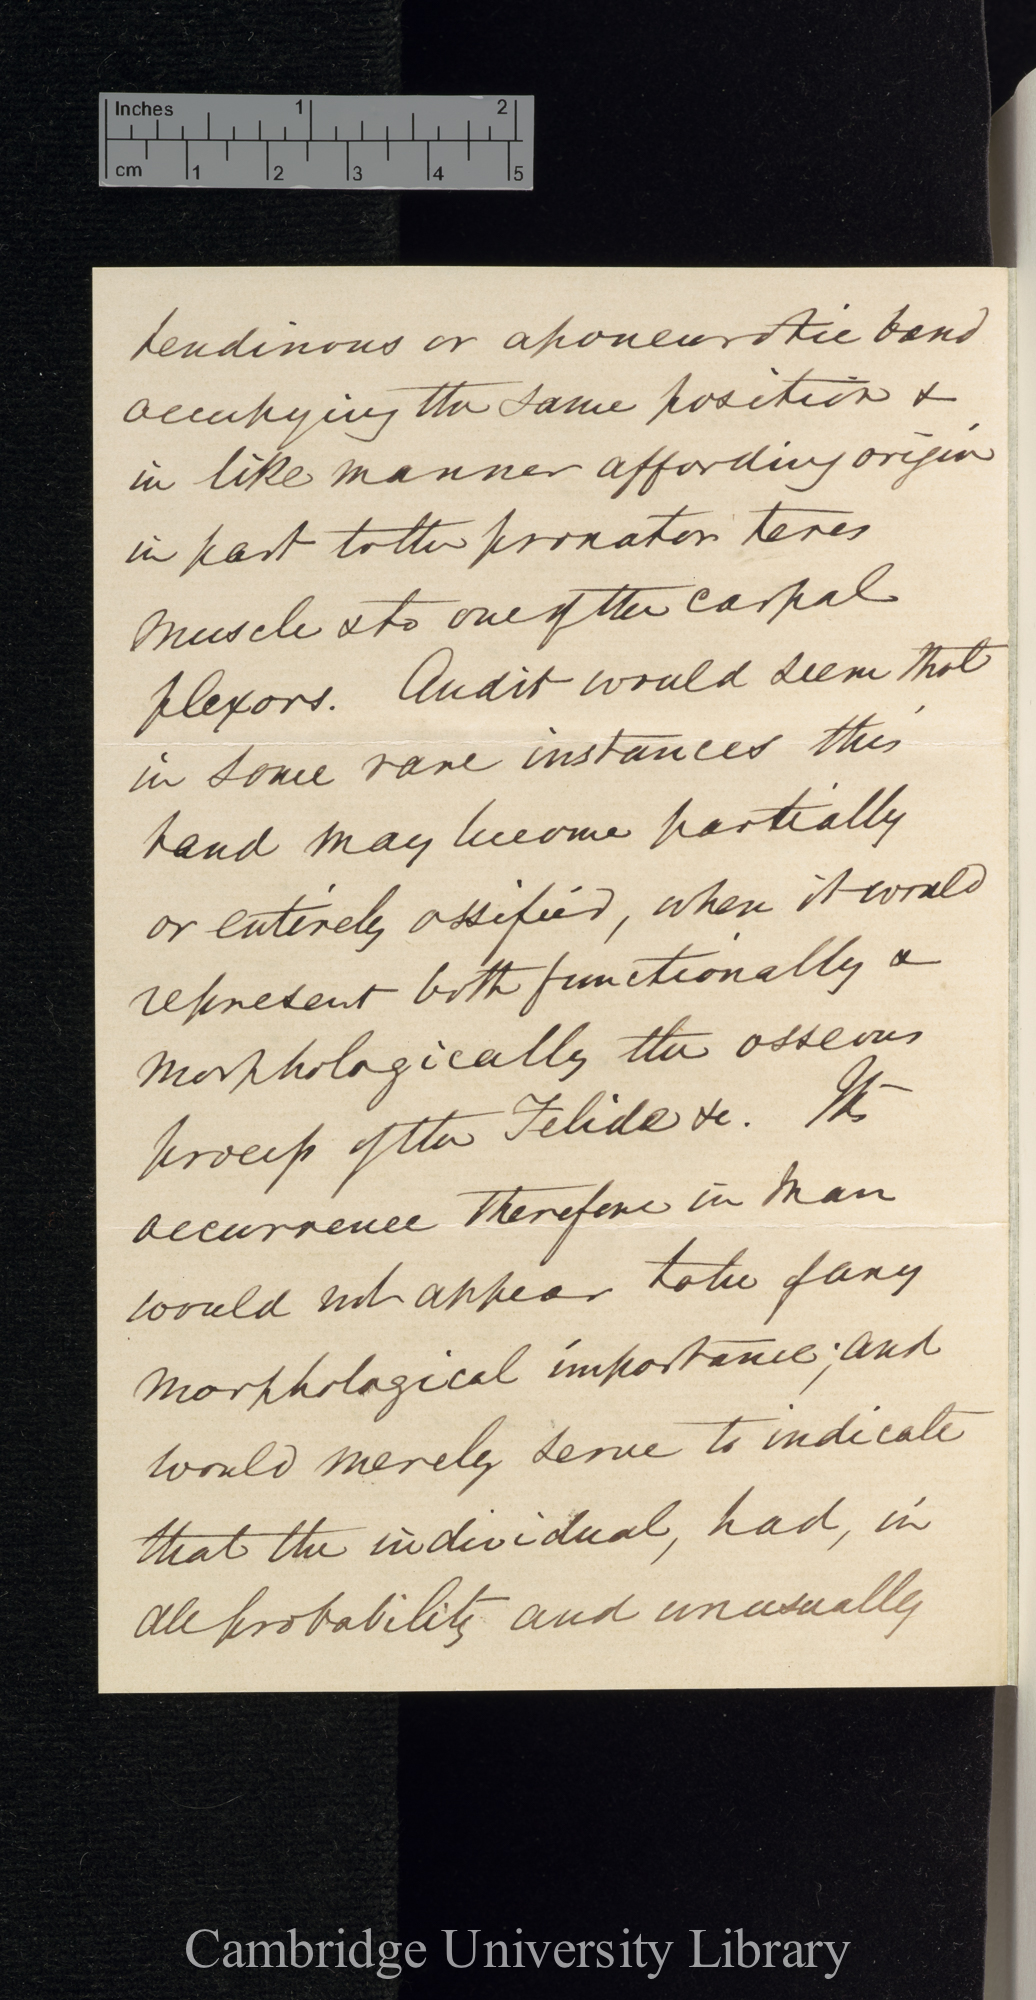 Inches 1 2
cm 1 2 3 4 5
tendinous or aponeurotic band
occupying the same position &
in like manner affording origin
in part to the pronator teres
muscle & to one of the carpal
flexors. And it would seem that
in some rare instances this
band may become partially
or entirely ossified, when it would
represent both functionally &
morphologically the osseous
process of the Felidæ &c. Its
occurrence therefore in Man
would not appear to be of any
morphological importance; and
would merely serve to indicate
that the individual, had, in
all probability and unusually
Cambridge University Library